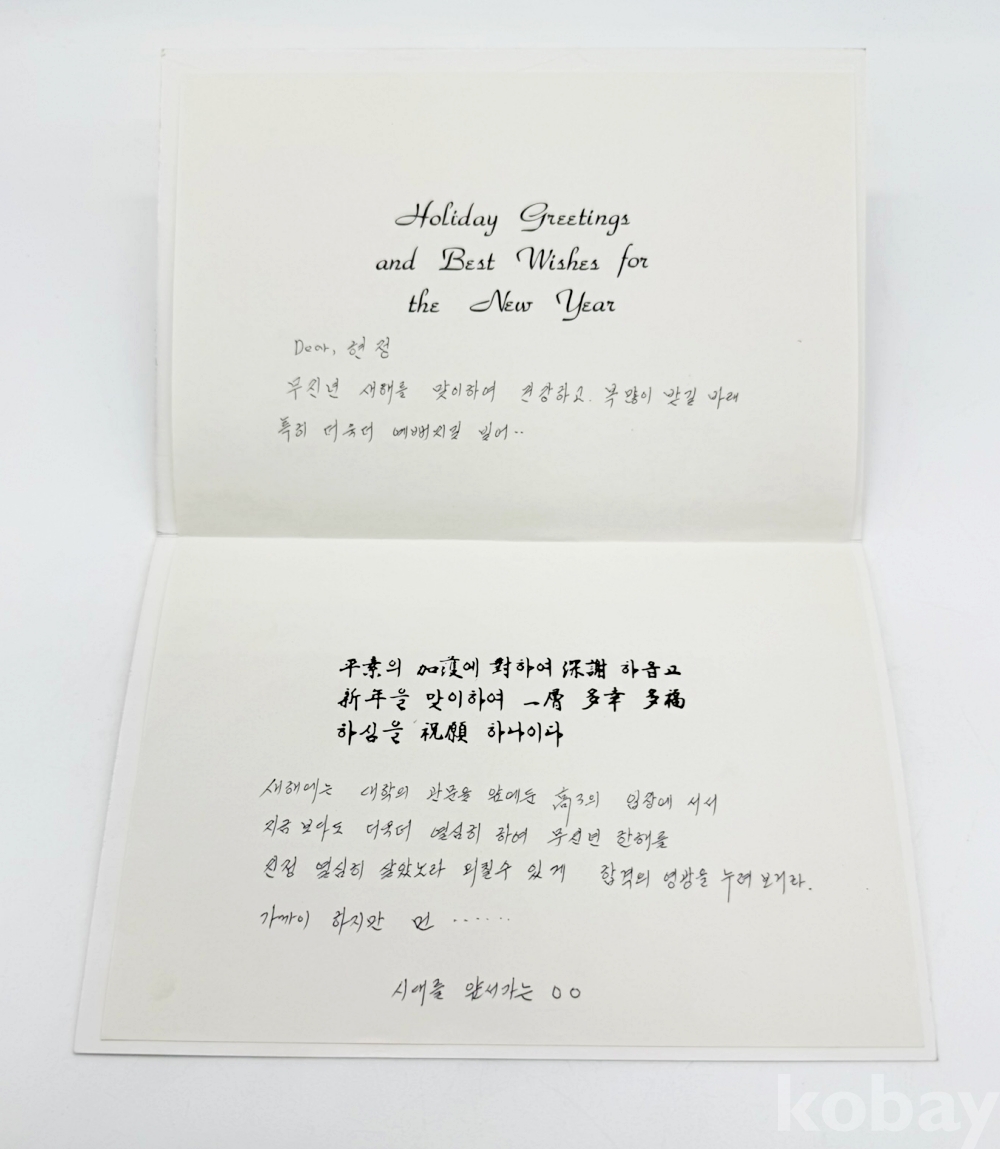 Holiday Greetings
and Best Wishes for
the New Year
Dear, 현정
무진년 새해를 맞이하여 건강하고. 복많이 받길 바래
특히 더욱더 예뻐지길 빌어..
平素의 加護에 對하여 深謝 하옵고
新年을 맞이하여 一層 多幸 多福
하심을 祝願 하나이다
새해에는 대학의 관문을 앞에둔 高3의 입장에 서서
지금 보다도 더욱더 열심히 하여 무진년 한해를
진정 열심히 살았노라 외칠수 있게 합격의 영광을 누려 보거라.
가까이 하지만 먼 ......
시대를 앞서가는 OO
kobay